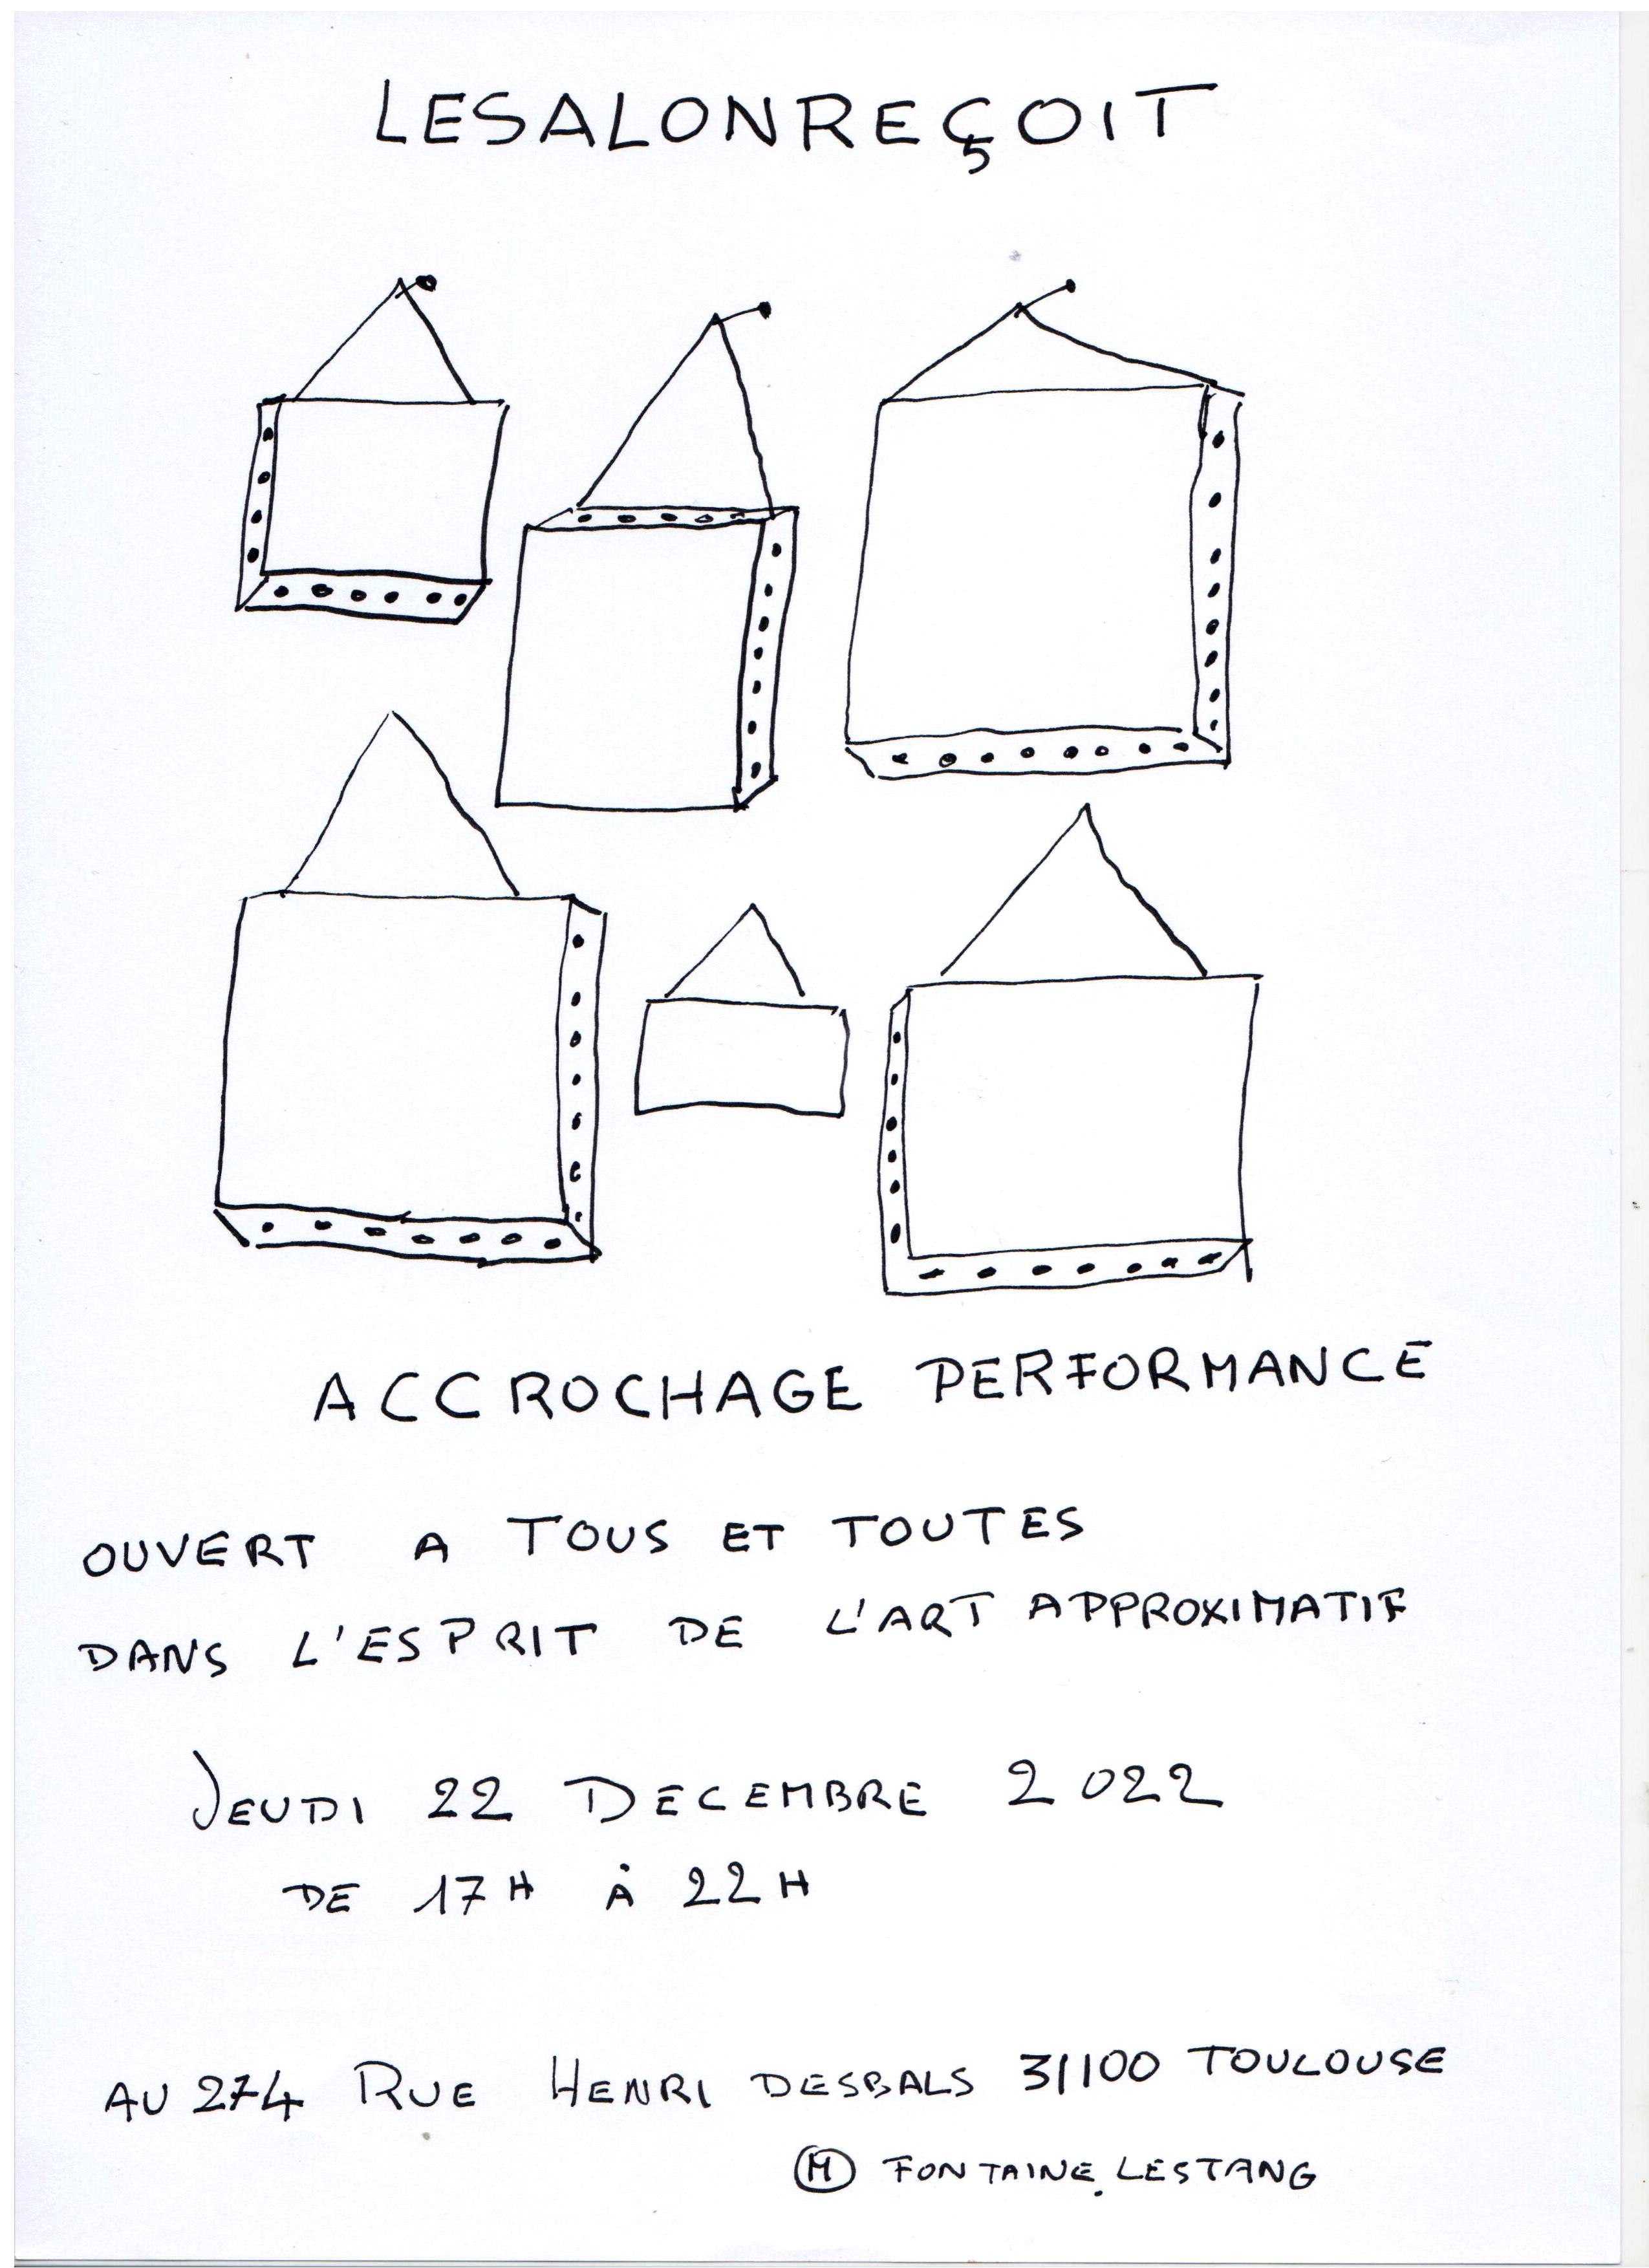 LESALONREÇOIT
ACCROCHAGE PERFORMANCE
OUVERT A TOUS ET TOUTES
DANS L'ESPRIT DE L'ART APPROXIMATIF
JEUDI 22 DECEMBRE 2022
DE 17H À 22H
AU 274 RUE HENRI DESBALS 31100 TOULOUSE
Ⓜ FONTAINE LESTANG